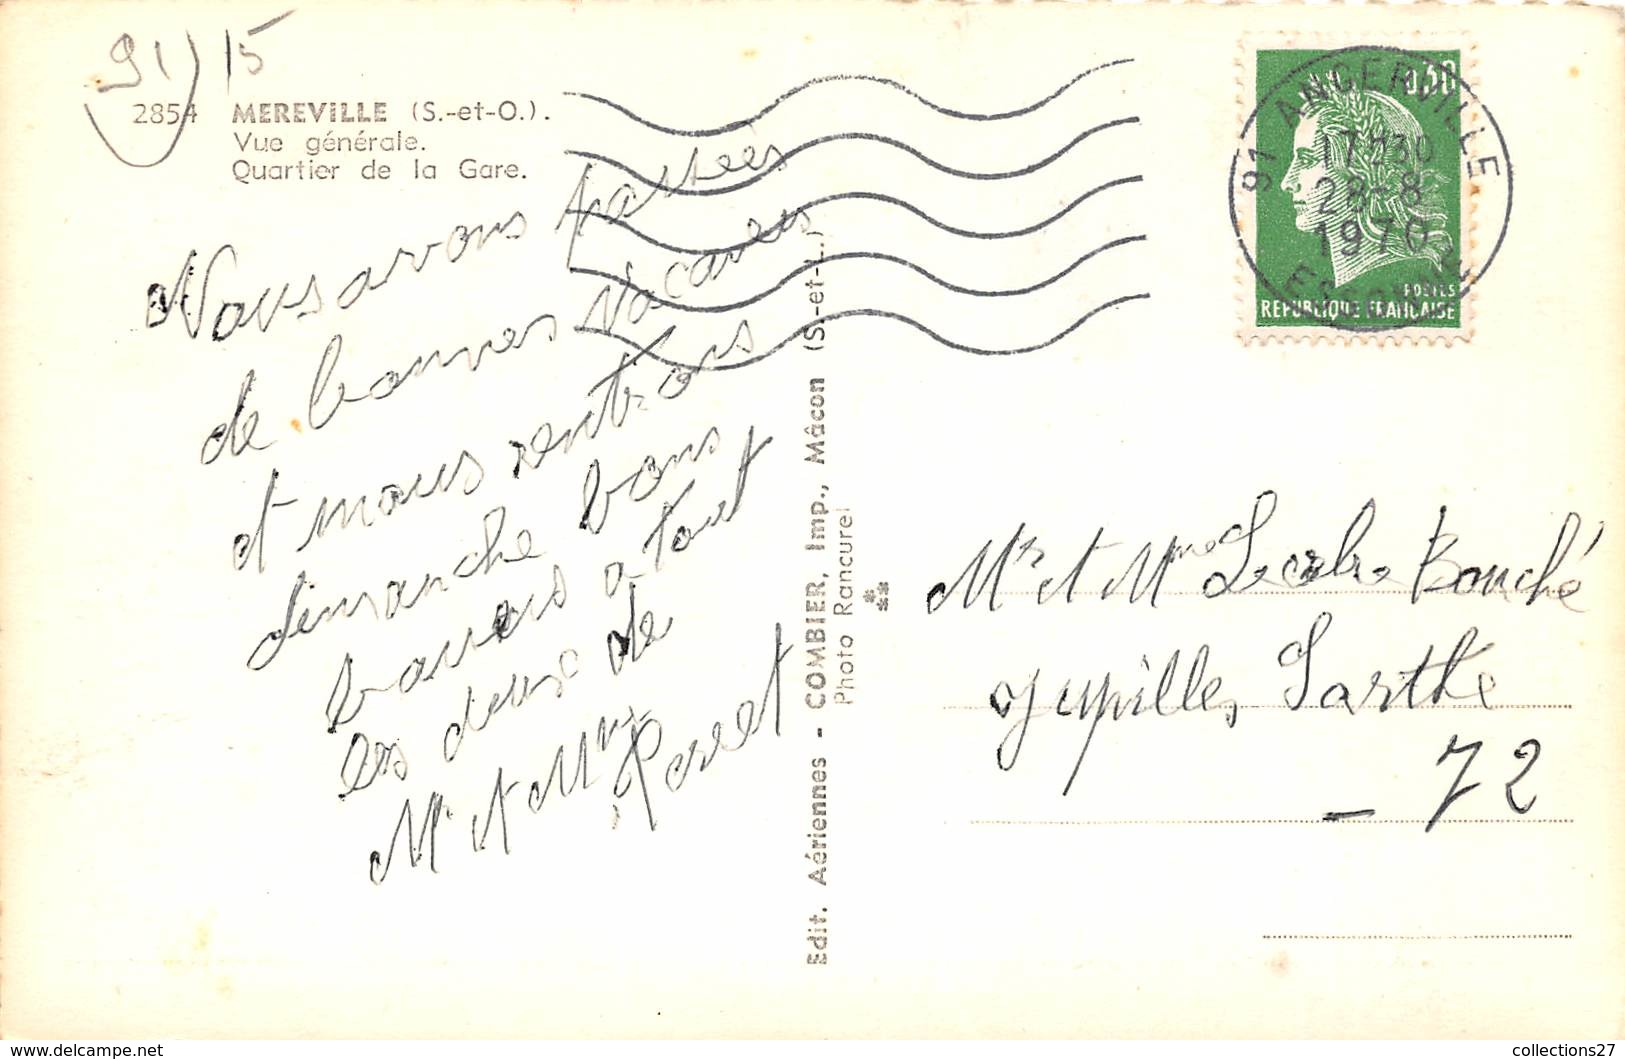 91) 15
2854 MEREVILLE (S.-et-O.).
Vue générale.
Quartier de la Gare.
Nous avons passees
de bonnes vacances
et nous rentrons
dimanche bons
baisers a tout
les deux de
Mr et Mme
Perret
Edit. Aériennes - COMBIER, Imp., Mâcon (S.-et-L.)
Photo Rancurel
0,30
POSTES
REPUBLIQUE FRANCAISE
91 ANGERVILLE
17H30
28-8
1970
ESSONNE
Mr et Mme Bouché
Jupilles Sarthe
- 72
collections27